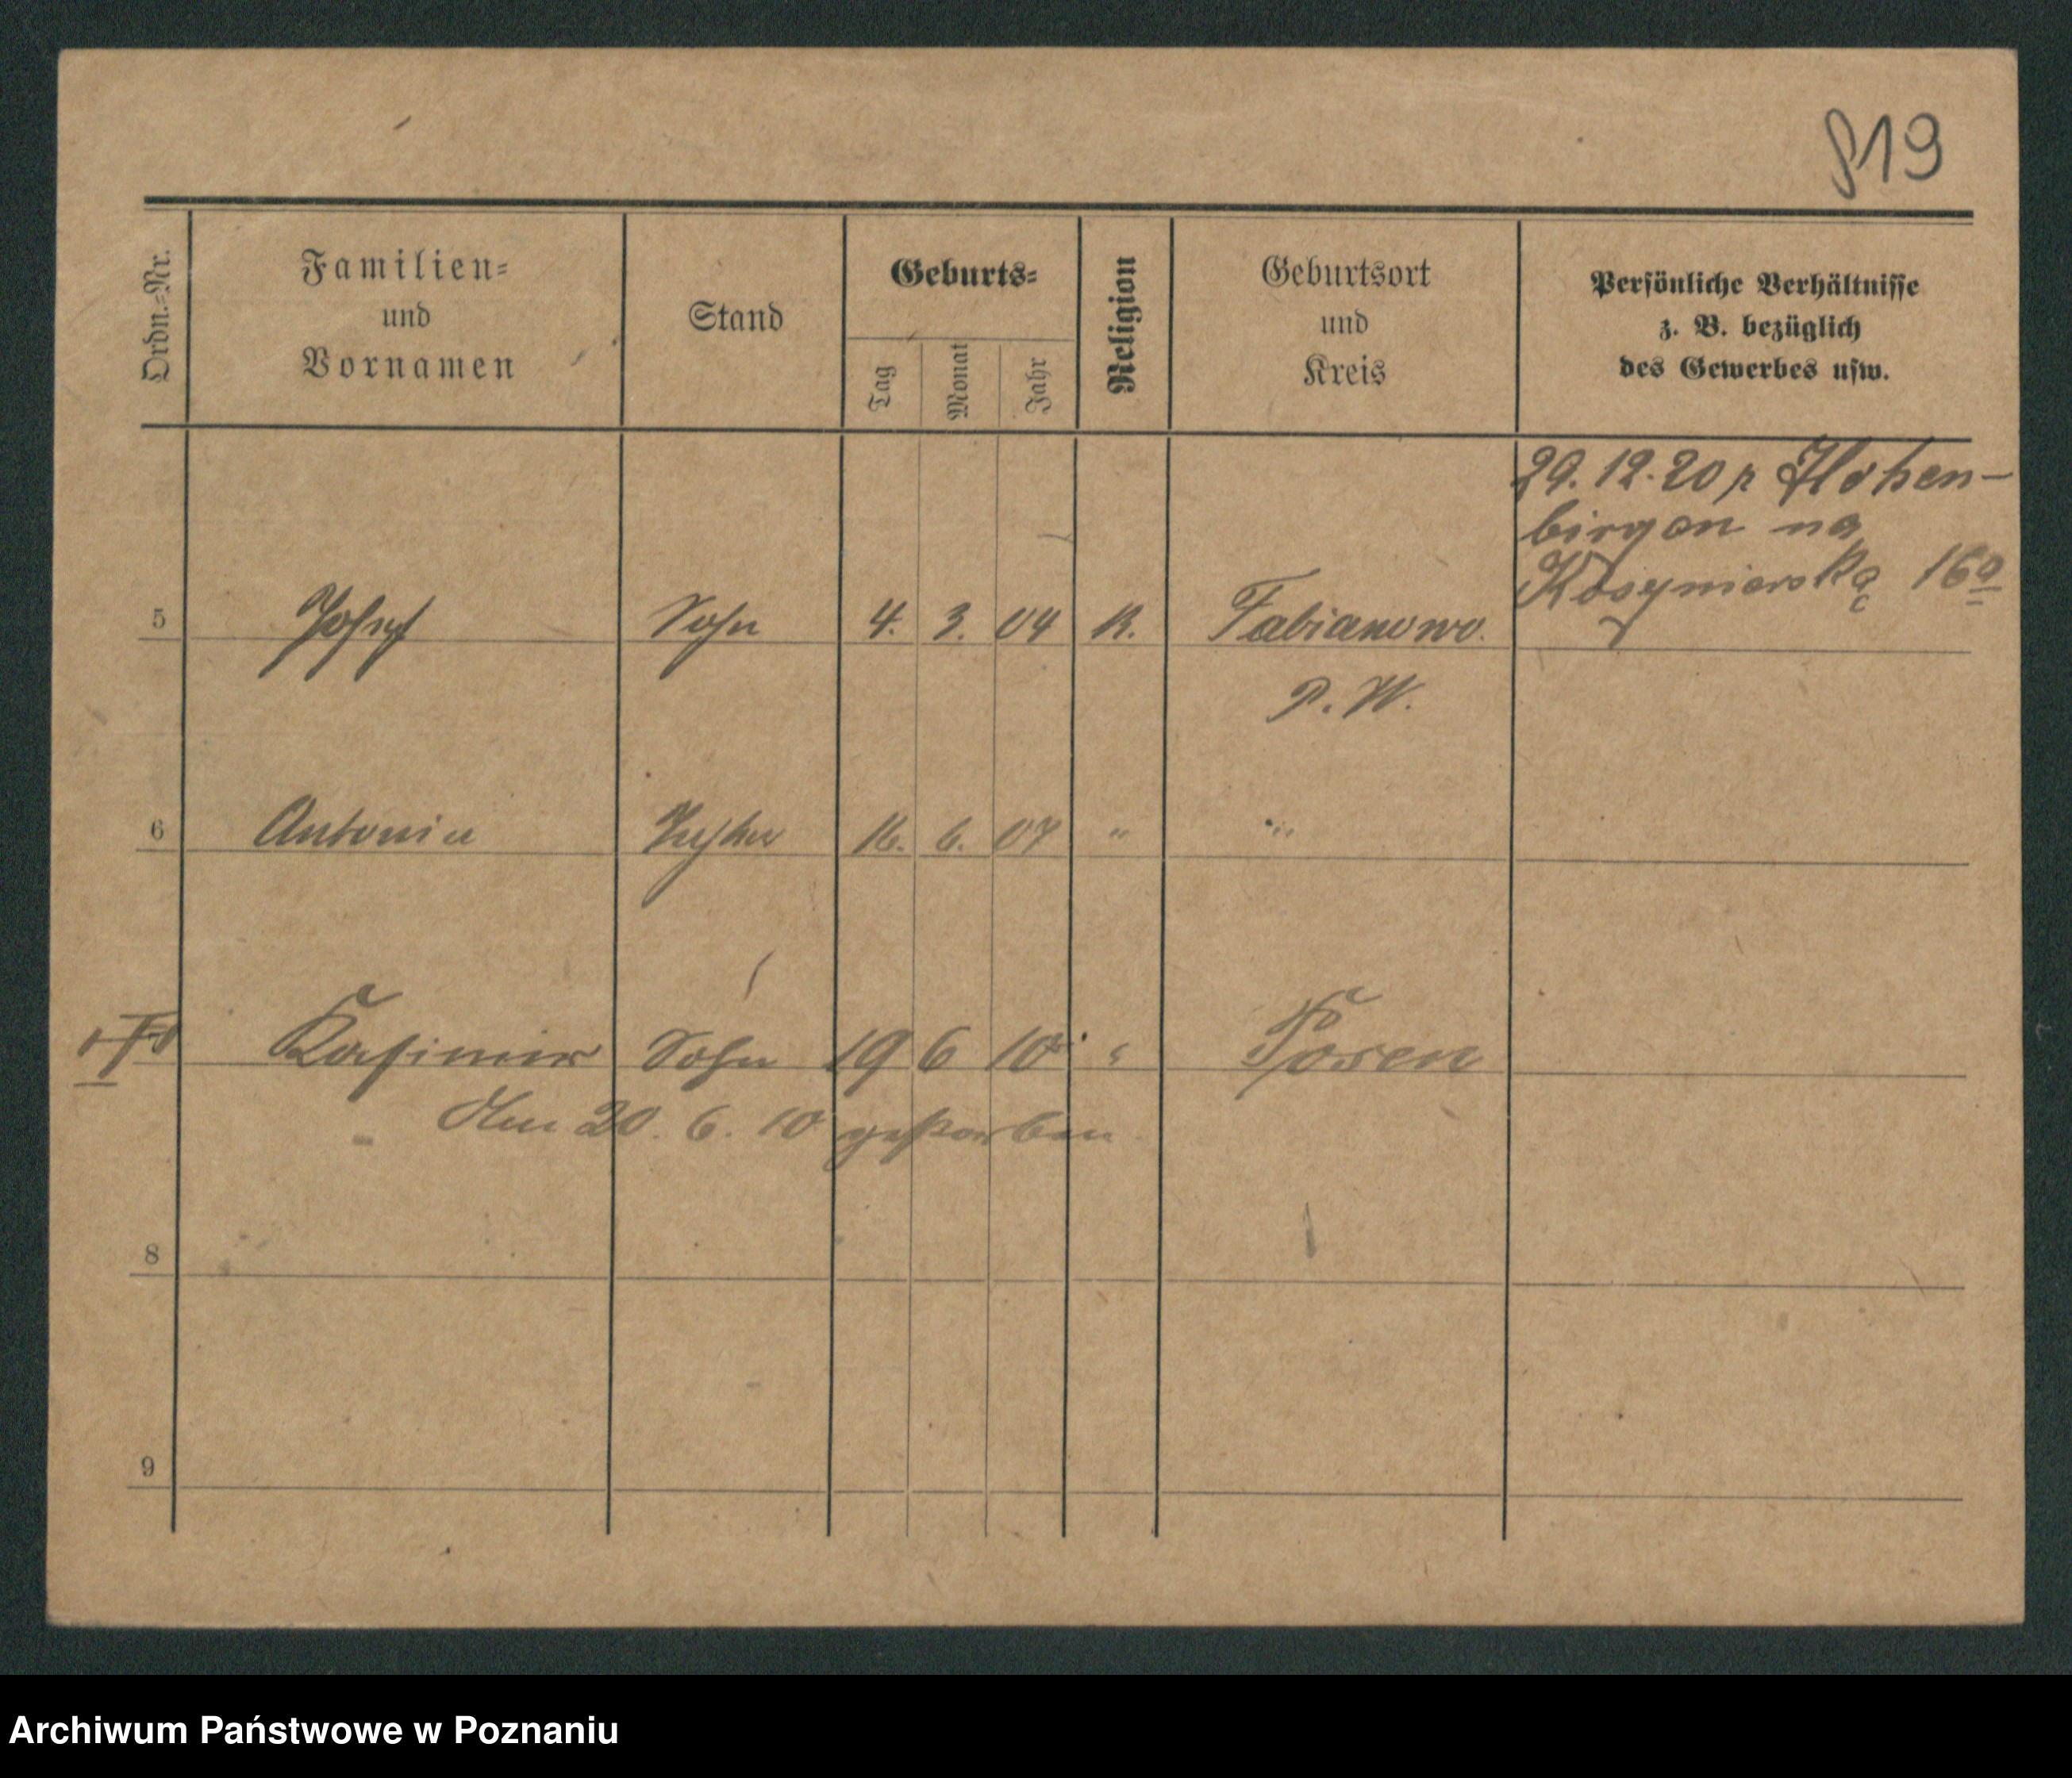 819
Ordn.-Nr.
Familien-
und
Vornamen
Stand
Geburts-
Tag
Monat
Jahr
Religion
Geburtsort
und
Kreis
Persönliche Verhältnisse
z. B. bezüglich
des Gewerbes usw.
29. 12. 20 z Hohen-
na
16a
5 Josef Sohn 4. 3. 04 K. Fabianowo.
P. W.
6 Antonia Tochter 16. 6. 07 " "
Kasimir Sohn 19 6 10 " Posen
Am 20. 6. 10 gestorben
8
9
Archiwum Państwowe w Poznaniu